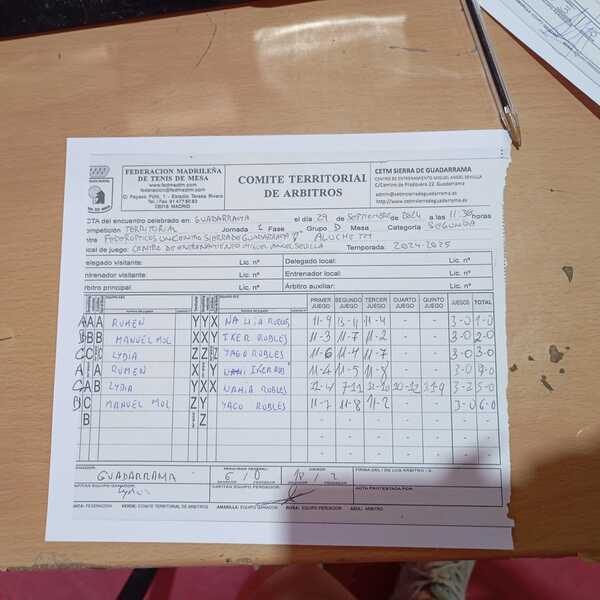 FEDERACIÓN MADRILEÑA
DE TENIS DE MESA
www.fedmadtm.com
federacion@fedmadtm.com
Pº Payaso Fofó, 1 - Estadio Teresa Rivero
Tel./Fax 91 477 80 83
28018 MADRID
COMITE TERRITORIAL
DE ARBITROS
CETM SIERRA DE GUADARRAMA
CENTRO DE ENTRENAMIENTO MIGUEL ANGEL SEVILLA
Guadarrama
admin@cetmsierradeguadarrama.es
http://www.cetmsierradeguadarrama.es
ACTA del encuentro celebrado en: GUADARRAMA el día 29 de SEPTIEMBRE de 2024 a las 11:30 horas
Competición TERRITORIAL Jornada 1 Fase Grupo D Mesa Categoría SEGUNDA
entre FEDEROPTICOS UNICENTRO SIERRA DE GUADARRAMA "D" ALUCHE TM
local de juego: CENTRO DE ENTRENAMIENTO MIGUEL ANGEL SEVILLA Temporada: 2024-2025
Delegado visitante: Lic. nº Delegado local: Lic. nº
Entrenador visitante: Lic. nº Entrenador local: Lic. nº
Arbitro principal: Lic. nº Árbitro auxiliar: Lic. nº
PRIMER JUEGO SEGUNDO JUEGO TERCER JUEGO CUARTO JUEGO QUINTO JUEGO JUEGOS TOTAL
A A RUMEN Y Y X NAHIA ROBLES 11-9 13-11 11-4 - - 3-0 1-0
B B MANUEL MOL X X IKER ROBLES 11-3 11-7 11-2 - - 3-0 2-0
C C LYDIA Z Z YAGO ROBLES 11-6 11-4 11-7 - - 3-0 3-0
A A RUMEN X IKER ROB 11-4 11-5 11-8 - - 3-0 4-0
C A B LYDIA Y X X NAHIA ROBLES 3-2 5-0
B C MANUEL MOL Z Y YAGO ROBLES 11-7 11-8 11-2 - - 3-0 6-0
B Z
GUADARRAMA 6 / 0 18 /
FIRMA DEL / DE LOS ARBITRO / S
CAPITAN EQUIPO GANADOR: CAPITAN EQUIPO PERDEDOR: ACTA PROTESTADA POR:
BLANCA: FEDERACION VERDE: COMITE TERRITORIAL DE ARBITROS AMARILLA: EQUIPO GANADOR ROSA: EQUIPO PERDEDOR AZUL: ARBITRO